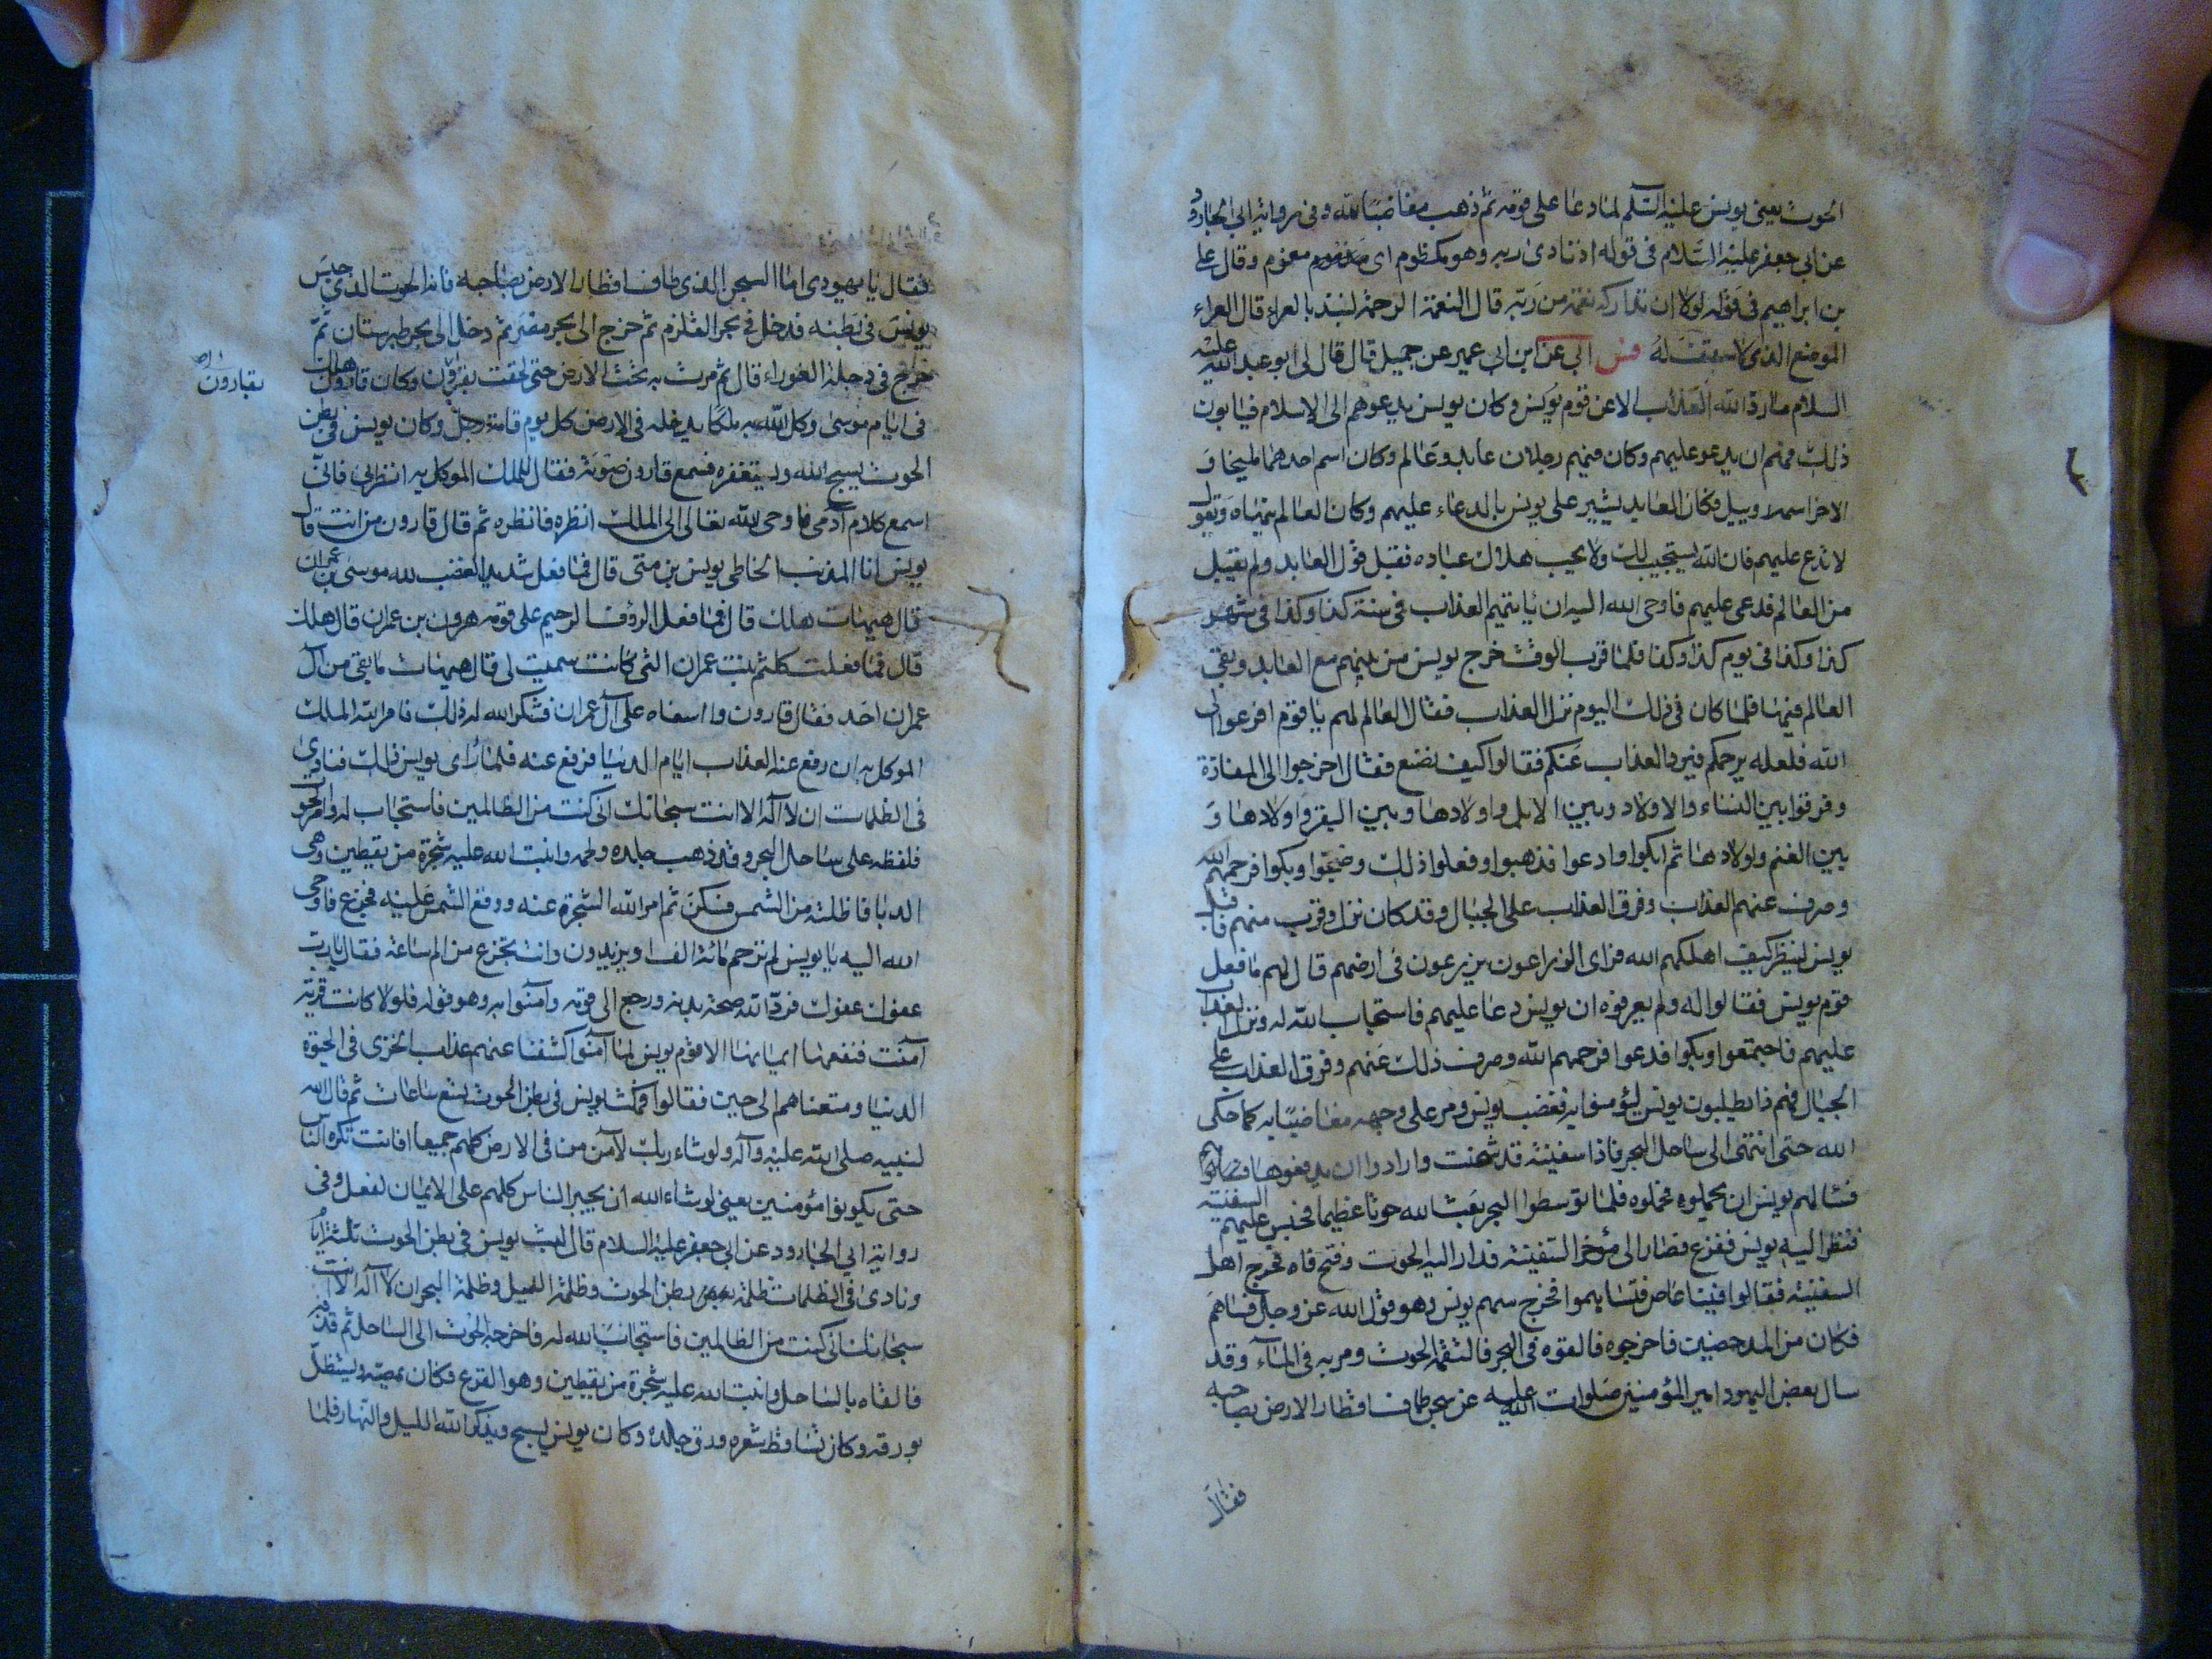 الحوت يعني يونس عليه السلم لما دعا على قومه ثم ذهب مغاضبا لله وفي رواية ابي الجارود
عن ابي جعفر عليه السلام في قوله اذ نادى ربه وهو مكظوم اى مغموم وقال علي
بن ابراهيم في قوله لولا ان تداركه نعمة من ربه قال النعمة الرحمة لنبذ بالعراء قال العراء
الموضع الذي لا سقف له فس ابي عن ابن ابي عمير عن جميل قال قال لي ابو عبد الله عليه
السلام ما رد الله العذاب الا عن قوم يونس وكان يونس يدعوهم الى الاسلام فيابون
ذلك فهم ان يدعو عليهم وكان فيهم رجلان عابد وعالم وكان اسم احدهما مليخا و
الاخر اسمه روبيل فكان العابد يشير على يونس بالدعاء عليهم وكان العالم ينهاه ويقول
لا تدع عليهم فان الله يستجيب لك ولا يحب هلاك عباده فقبل قول العابد ولم يقبل
من العالم فدعى عليهم فاوحى الله اليه ان ياتيهم العذاب في سنة كذا وكذا في شهر
كذا وكذا في يوم كذا وكذا فلما قرب الوقت خرج يونس من بينهم مع العابد وبقي
العالم فيها فلما كان في ذلك اليوم نزل العذاب فقال العالم لهم يا قوم افزعوا الى
الله فلعله يرحمكم فيرد العذاب عنكم فقالوا كيف نصنع فقال اخرجوا الى المفازة
وفرقوا بين النساء والاولاد وبين الابل واولادها وبين البقر واولادها و
بين الغنم واولادها ثم ابكوا وادعوا فذهبوا وفعلوا ذلك وضجوا وبكوا فرحمهم الله
وصرف عنهم العذاب وفرق العذاب على الجبال وقد كان نزل وقرب منهم فاقبل
يونس لينظر كيف اهلكهم الله فراى الزراعون يزرعون في ارضهم قال لهم ما فعل
قوم يونس فقالوا له ولم يعرفوه ان يونس دعا عليهم فاستجاب الله له ونزل العذاب
عليهم فاجتمعوا وبكوا فدعوا فرحمهم الله وصرف ذلك عنهم وفرق العذاب على
الجبال فهم ذا يطلبون يونس ليؤمنوا به فغضب يونس ومر على وجهه مغاضبا به كما حكى
الله حتى انتهى الى ساحل البحر فاذا سفينة قد شحنت وارادوا ان يدفعوها
فسالهم يونس ان يحملوه فحملوه فلما توسطوا البحر بعث الله حوتا عظيما فحبس عليهم السفينة
فنظر اليه يونس ففزع فصار الى مؤخر السفينة فدار اليه الحوت وفتح فاه فخرج اهل
السفينة فقالوا فينا عاص فتساهموا فخرج سهم يونس وهو قول الله عز وجل فساهم
فكان من المدحضين فاخرجوه فالقوه في البحر فالتقمه الحوت ومر به في الماء وقد
سال بعض اليهود امير المؤمنين صلوات الله عليه عن سجن طاف اقطار الارض بصاحبه
فقال
فقال يا يهودي اما السجن الذي طاف اقطار الارض بصاحبه فانه الحوت الذي حبس
يونس في بطنه فدخل في بحر القلزم ثم خرج الى بحر مصر ثم دخل الى بحر طبرستان ثم
خرج في دجلة الغوراء قال ثم مرت به تحت الارض حتى لحقت بقارون وكان قارون هلك
بقارون
في ايام موسى وكل الله به ملكا يدخله في الارض كل يوم قامة رجل وكان يونس في بطن
الحوت يسبح الله ويستغفره فسمع قارون صوته فقال للملك الموكل به انظرني فاني
اسمع كلام آدمي فاوحى الله تعالى الى الملك انظره فانظره ثم قال قارون من انت قال
يونس انا المذنب الخاطي يونس بن متى قال فما فعل شديد الغضب لله موسى بن عمران
قال هيهات هلك قال فما فعل الرؤف الرحيم على قومه هرون بن عمران قال هلك
قال فما فعلت كلثم بنت عمران التي كانت سميت لي قال هيهات ما بقي من آل
عمران احد فقال قارون وا اسفاه على آل عمران فشكر الله له ذلك فامر الله الملك
الموكل به ان رفع عنه العذاب ايام الدنيا فرفع عنه فلما راى يونس ذلك فنادى
في الظلمات ان لا اله الا انت سبحانك اني كنت من الظالمين فاستجاب له وامر الحوت
فلفظه على ساحل البحر وقد ذهب جلده ولحمه وانبت الله عليه شجرة من يقطين وهي
الدبا فاظلته من الشمس فسكن ثم امر الله الشجرة عنه ووقع الشمس عليه فجزع فاوحى
الله اليه يا يونس لم ترحم مائة الف او يزيدون وانت تجزع من الم ساعة فقال يا رب
عفوك عفوك فرد الله صحة بدنه ورجع الى قومه وآمنوا به وهو قوله فلولا كانت قرية
آمنت فنفعها ايمانها الا قوم يونس لما آمنوا كشفنا عنهم عذاب الخزي في الحيوة
الدنيا ومتعناهم الى حين فقالوا فمكث يونس في بطن الحوت تسع ساعات ثم قال الله
لنبيه صلى الله عليه وآله ولو شاء ربك لآمن من في الارض كلهم جميعا افانت تكره الناس
حتى يكونوا مؤمنين يعني لو شاء الله ان يجبر الناس كلهم على الايمان لفعل وفي
رواية ابي الجارود عن ابي جعفر عليه السلام قال لبث يونس في بطن الحوت ثلثة ايام
ونادى في الظلمات ظلمة بطن الحوت وظلمة الليل وظلمة البحر ان لا اله الا انت
سبحانك اني كنت من الظالمين فاستجاب الله له فاخرجه الحوت الى الساحل ثم قذفه
فالقاه بالساحل وانبت الله عليه شجرة من يقطين وهو القرع فكان يمصه ويستظل
بورقه وكان تساقط شعره ورق جلده وكان يونس يسبح ويذكر الله الليل والنهار فلما